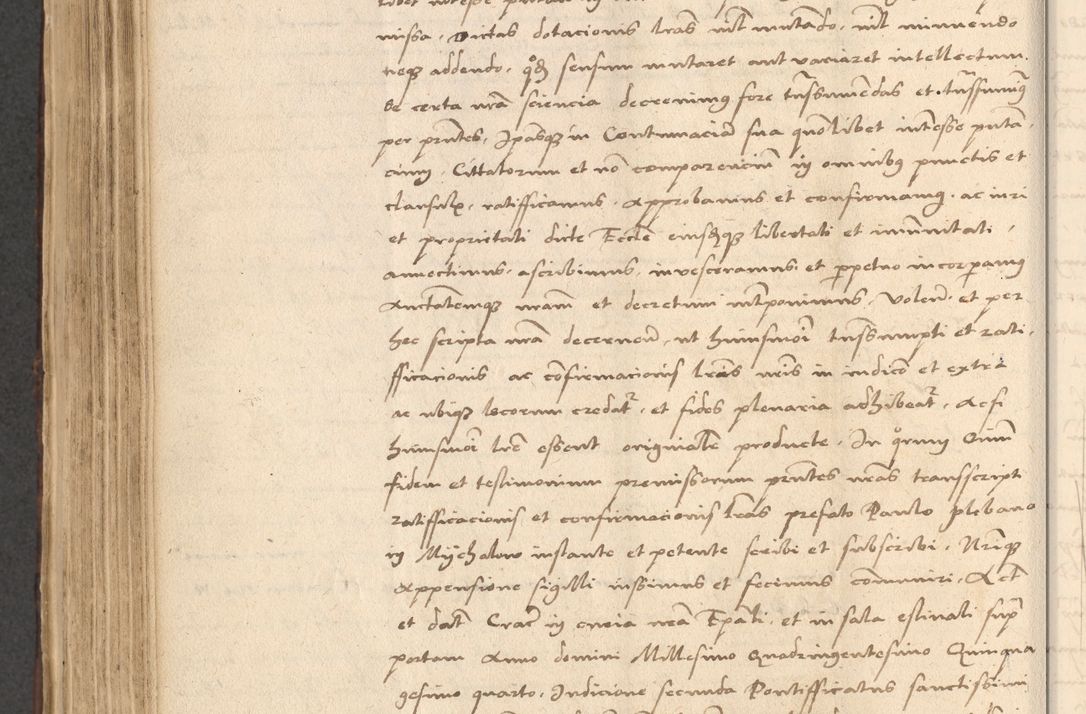 missa, dictas dotacionis lras nil mutando, nil minuendo
neqz addendo, qd sensum mutaret aut variaret intellectum.
De certa nra sciencia decrevimus fore transsumendas et transsumimus
per presentes, Ipasqz in Contumaciam sua quomlibet interesse putan
cium, Cittatorum et non comparencium in omnibus punctis et
clausulis, ratifficamus, Approbamus et confirmamus, ac iuri
et proprietati dicte Ecclie eiusqz libertati et immunitati,
annectimus, ascribimus, invisceramus et perpetuo incorporamus
Auctatemqz nram et decretum interponimus, Volen et per
hec scripta nra decernen, ut huiusmoi transsumpti et rati,
fficacionis ac confirmacionis lris nris in iudicio et extra
ac ubiqz locorum credatur, et fides plenaria adhibeatur, Acsi
huiusmoi lre essent originalr producte, In quorum omnium
fidem et testimonium premissorum presentes nras transscripti
ratifficacionis et confirmacionis lras prefato Paulo plebano
in Mijchalow instante et petente scribi et subscribi, Nriqz
Appensione sigilli iussimus et fecimus communiri, Act
et dat Crac in curia nra Epali, et in sala estivali supra
portam Anno domini Millesimo Quadringentesimo Quinqua
gesimo quarto, Indicione secunda Pontifficatus sanctissimi